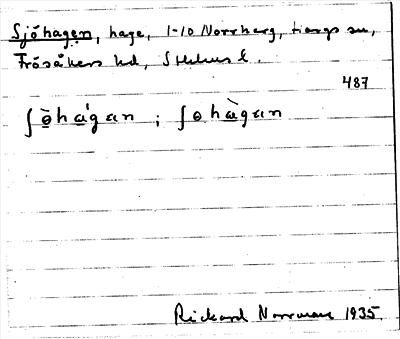 Sjöhagen, hage, 1-10 Norrharg, Hargs sn,
Frösåkers hd, Sthlms l.
487
ʃɵ̀hágan ; ʃɵhàgan
Rickard Norrman 1935.